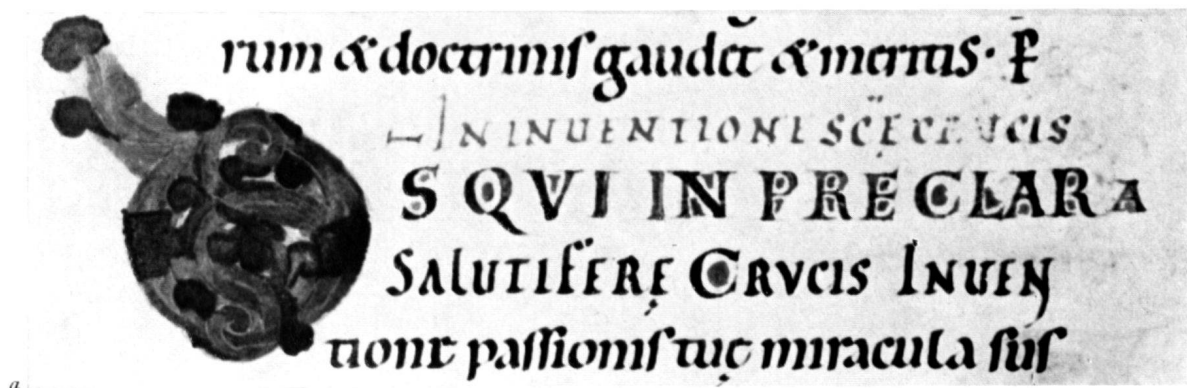 rum & doctrinis gaudet & meritis · P̄
IN INUENTIONE SC̄Ę CRUCIS
DS QVI IN PRECLARA
SALUTIFERĘ CRVCIS INUEN
tione passionis tuę miracula sus
a